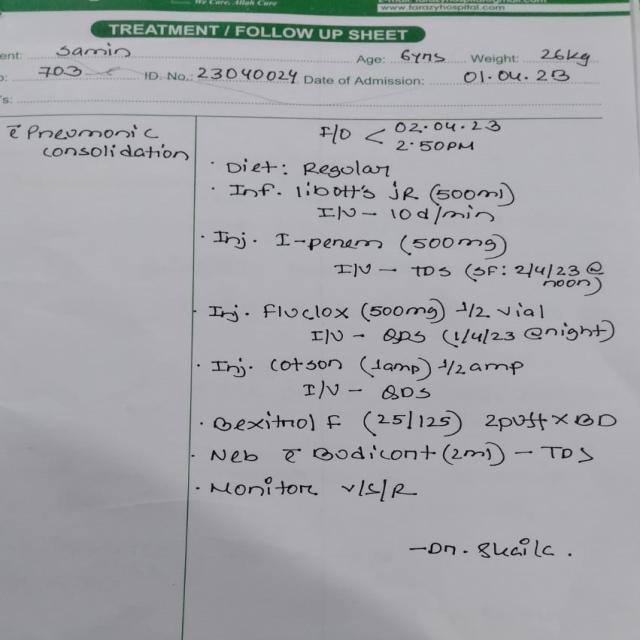 We Care, Allah Cure
www.farazyhospital.com
TREATMENT / FOLLOW UP SHEET
ent: Samin Age: 6yrs Weight: 26kg
o: 703 ID. No.: 23040024 Date of Admission: 01.04.23
's:
c̄ Pneumonic
consolidation
F/O < 02.04.23
2.50PM
· Diet: Regular
· Inf. libott's JR (500ml)
I/V - 10d/min
· Inj. I-penem (500mg)
I/V - TDS (SF: 2/4/23 @
noon)
· Inj. Fluclox (500mg) 1/2 vial
I/V - QDS (1/4/23 @night)
· Inj. cotson (1amp) 1/2 amp
I/V - QDS
· Bexitrol F (25/125) 2puff X BD
· Neb c̄ Budicont (2ml) - TDS
· Monitor V/S/R
- Dr. Shaila.